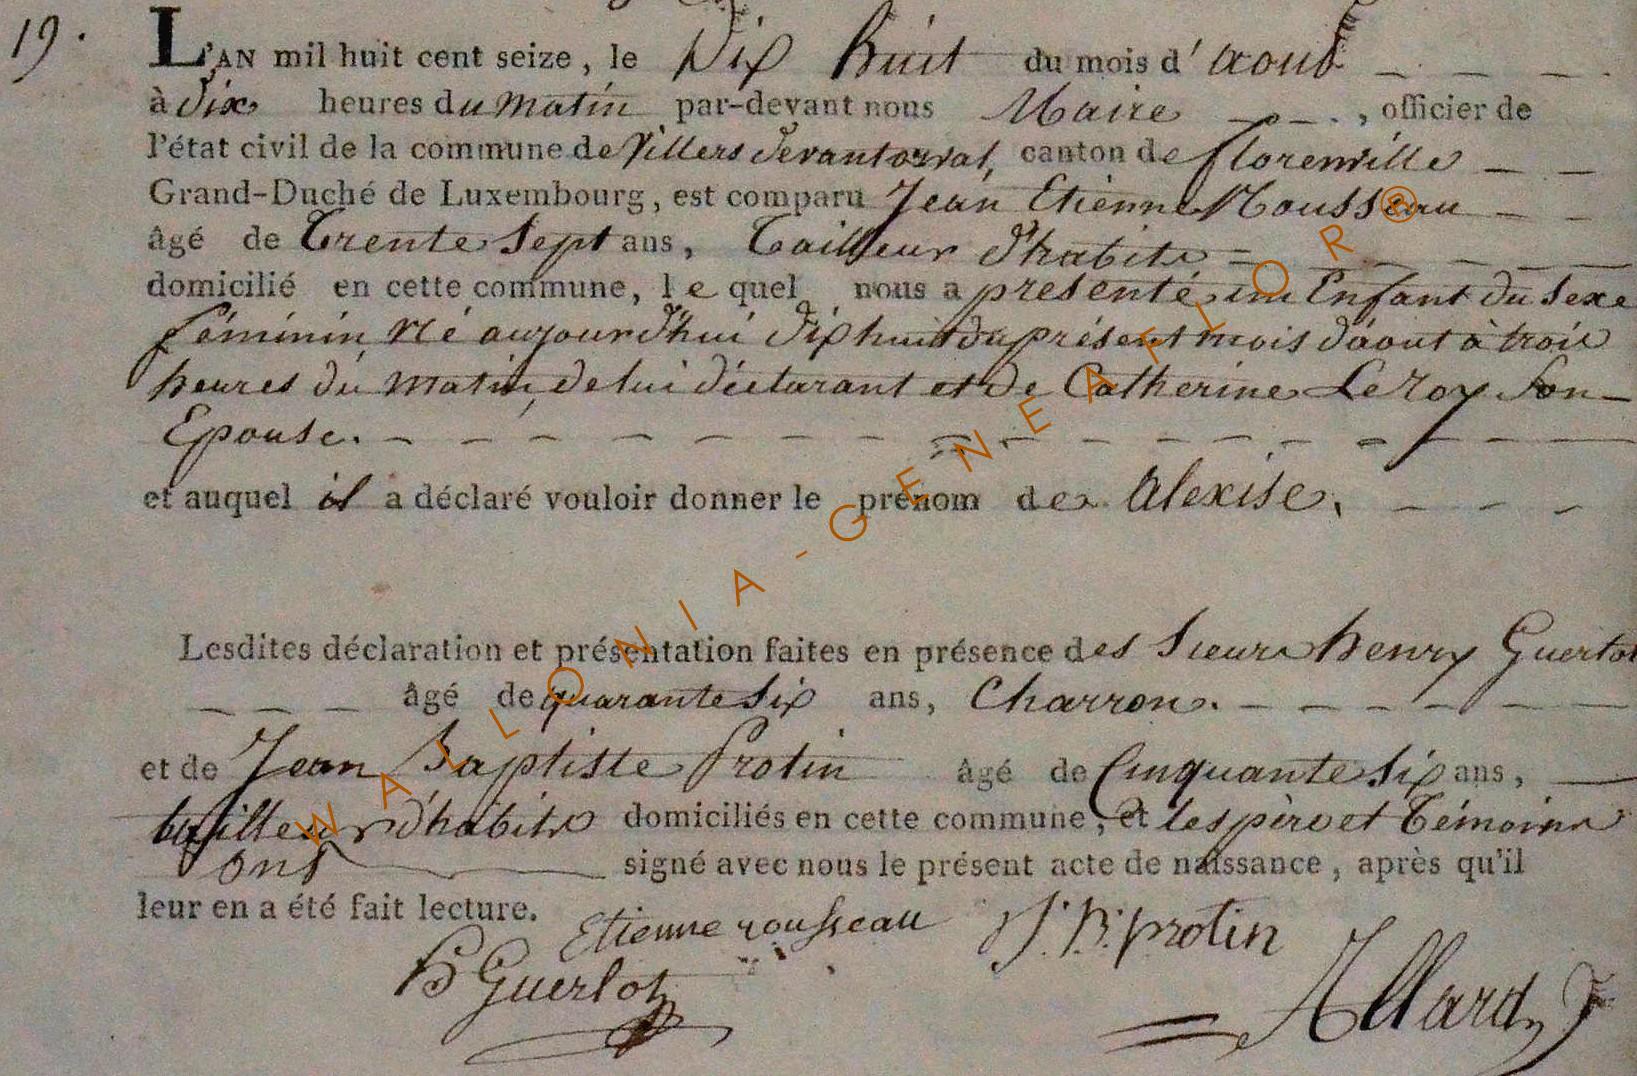 19.
L'AN mil huit cent seize, le Dix huit du mois d'aout
à dix heures du matin par-devant nous Maire, officier de
l'état civil de la commune de Villers devant orval, canton de florenville
Grand-Duché de Luxembourg, est comparu Jean Etienne Rousseau
âgé de Trente Sept ans, Tailleur d'habits
domicilié en cette commune, le quel nous a présenté un Enfant du Sexe
féminin, Né aujourd'hui dix huit du présent mois d'aout à trois
heures du matin, de lui déclarant et de Catherine LeRoy Son
Epouse.
et auquel il a déclaré vouloir donner le prénom de Alexise.
Lesdites déclaration et présentation faites en présence des Sieurs henry Guerlot
âgé de quarante Six ans, Charron.
et de Jean Baptiste Protin âgé de Cinquante Six ans,
tailleur d'habits domiciliés en cette commune, et les père et Témoins
ont signé avec nous le présent acte de naissance, après qu'il
leur en a été fait lecture.
Etienne rousseau J. B. protin
h Guerlot
Allard
WALLONIA-GENEAFLOR®